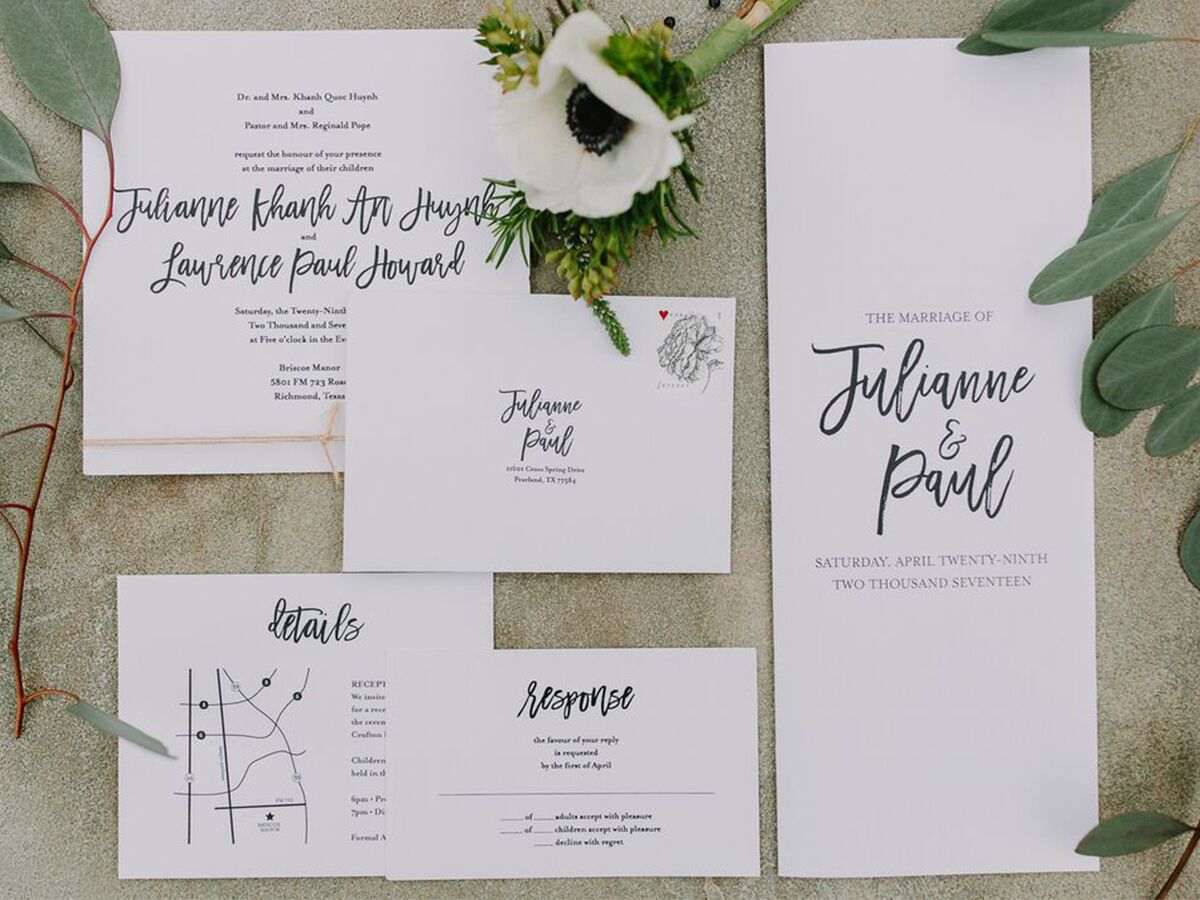 Dr. and Mrs. Khanh Quoc Huynh
and
Pastor and Mrs. Reginald Pope
request the honour of your presence
at the marriage of their children
Julianne Khanh An Huynh
and
Lawrence Paul Howard
Saturday, the Twenty-Ninth
Two Thousand and Seve
at Five o'clock in the Eve
Briscoe Manor
5801 FM 723 Road
Richmond, Texas
forever
Julianne
&
Paul
11601 Grass Spring Drive
Pearland, TX 77584
THE MARRIAGE OF
Julianne
&
Paul
SATURDAY, APRIL TWENTY-NINTH
TWO THOUSAND SEVENTEEN
details
RECEPT
We invite
for a rece
the cerem
Crofton
Children
held in th
6pm • Pr
7pm • Di
Formal A
FM 723
BRISCOE
MANOR
response
the favour of your reply
is requested
by the first of April
____ of ____ adults accept with pleasure
____ of ____ children accept with pleasure
____ decline with regret